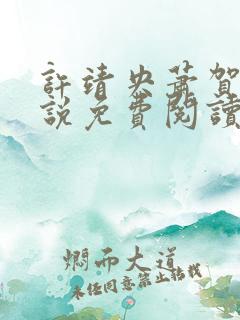 許靖央蕭賀
說免費閱讀
燜而大道
未经同意禁止转载